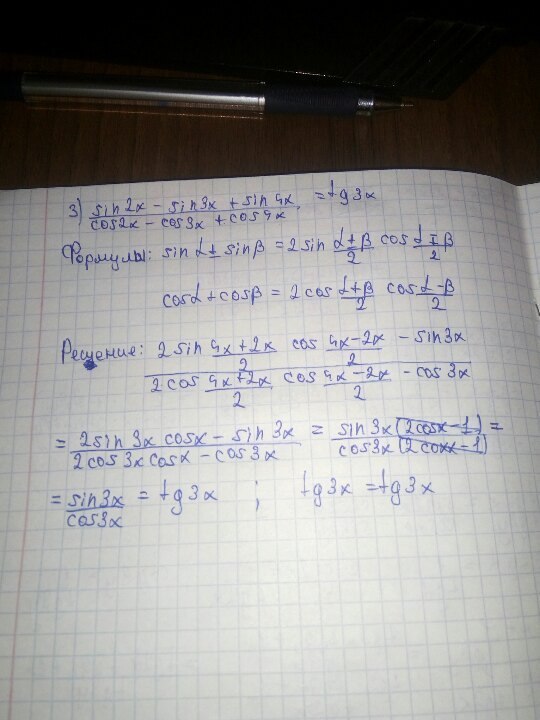 3) (sin2x - sin3x + sin4x)/(cos2x - cos3x + cos4x) = tg3x
Формулы: sinα ± sinβ = 2sin (α±β)/2 cos (α∓β)/2
cosα + cosβ = 2cos (α+β)/2 cos (α-β)/2
Решение: (2sin (4x+2x)/2 cos (4x-2x)/2 - sin3x)/(2cos (4x+2x)/2 cos (4x-2x)/2 - cos3x)
= (2sin3x cosx - sin3x)/(2cos3x cosx - cos3x) = (sin3x(2cosx-1))/(cos3x(2cosx-1)) =
= sin3x/cos3x = tg3x ; tg3x = tg3x